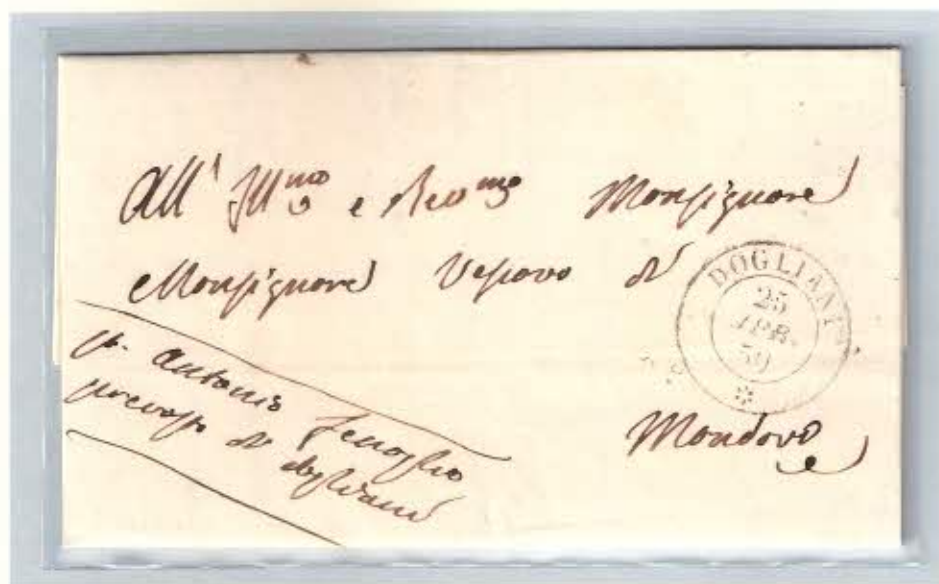 All' Ill.mo e Rev.mo Monsignore
Monsignore Vescovo di
DOGLIANI
25
APR.
59
Mondovì
p. Antonio Fenoglio
prevosto di dogliani